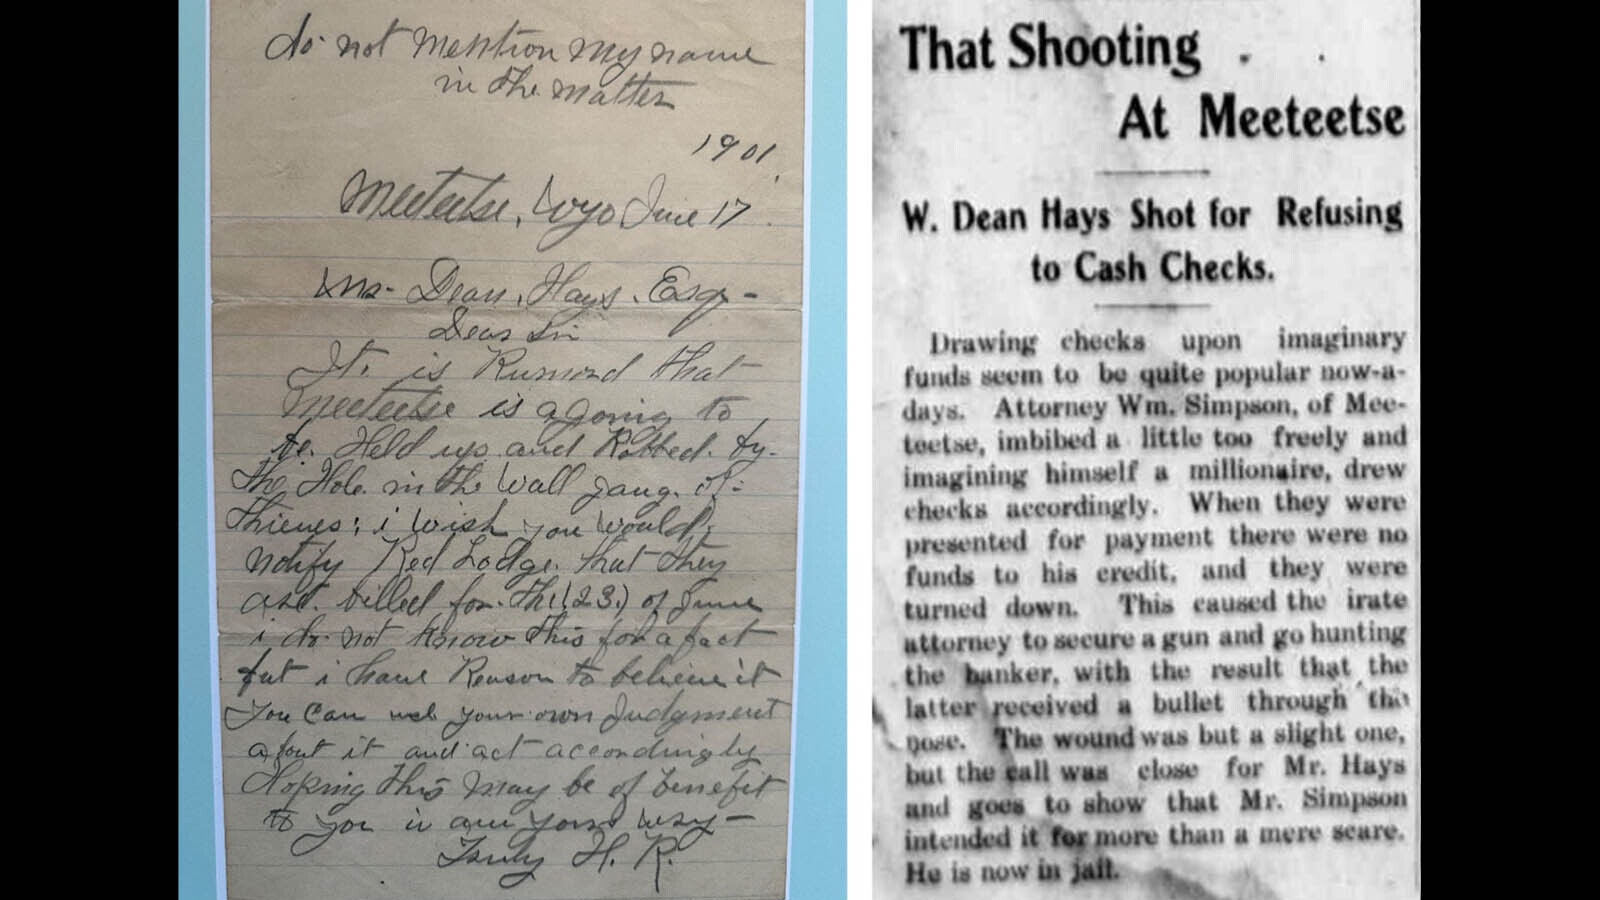 do not mention my name
in the matter
1901
Meeteetse, Wyo June 17
Mr. Dean, Hays. Esq -
Dear Sir
It. is Rumord that
Meeteetse is agoing to
be. Held up and Robbed. by-
the Hole in the Wall gang. of-
thieves; i wish you would,
notify Red Lodge. that they
are. billed for. the (23.) of June
i do. not know this for a fact
but i have Reason to believe it
You can use your own Judgment
about it and act accordingly
Hoping this may be of benefit
to you i am yours very -
Truly H. R.
That Shooting
At Meeteetse
W. Dean Hays Shot for Refusing
to Cash Checks.
Drawing checks upon imaginary
funds seem to be quite popular now-a-
days. Attorney Wm. Simpson, of Mee-
teetse, imbibed a little too freely and
imagining himself a millionaire, drew
checks accordingly. When they were
presented for payment there were no
funds to his credit, and they were
turned down. This caused the irate
attorney to secure a gun and go hunting
the banker, with the result that the
latter received a bullet through the
nose. The wound was but a slight one,
but the call was close for Mr. Hays
and goes to show that Mr. Simpson
intended it for more than a mere scare.
He is now in jail.